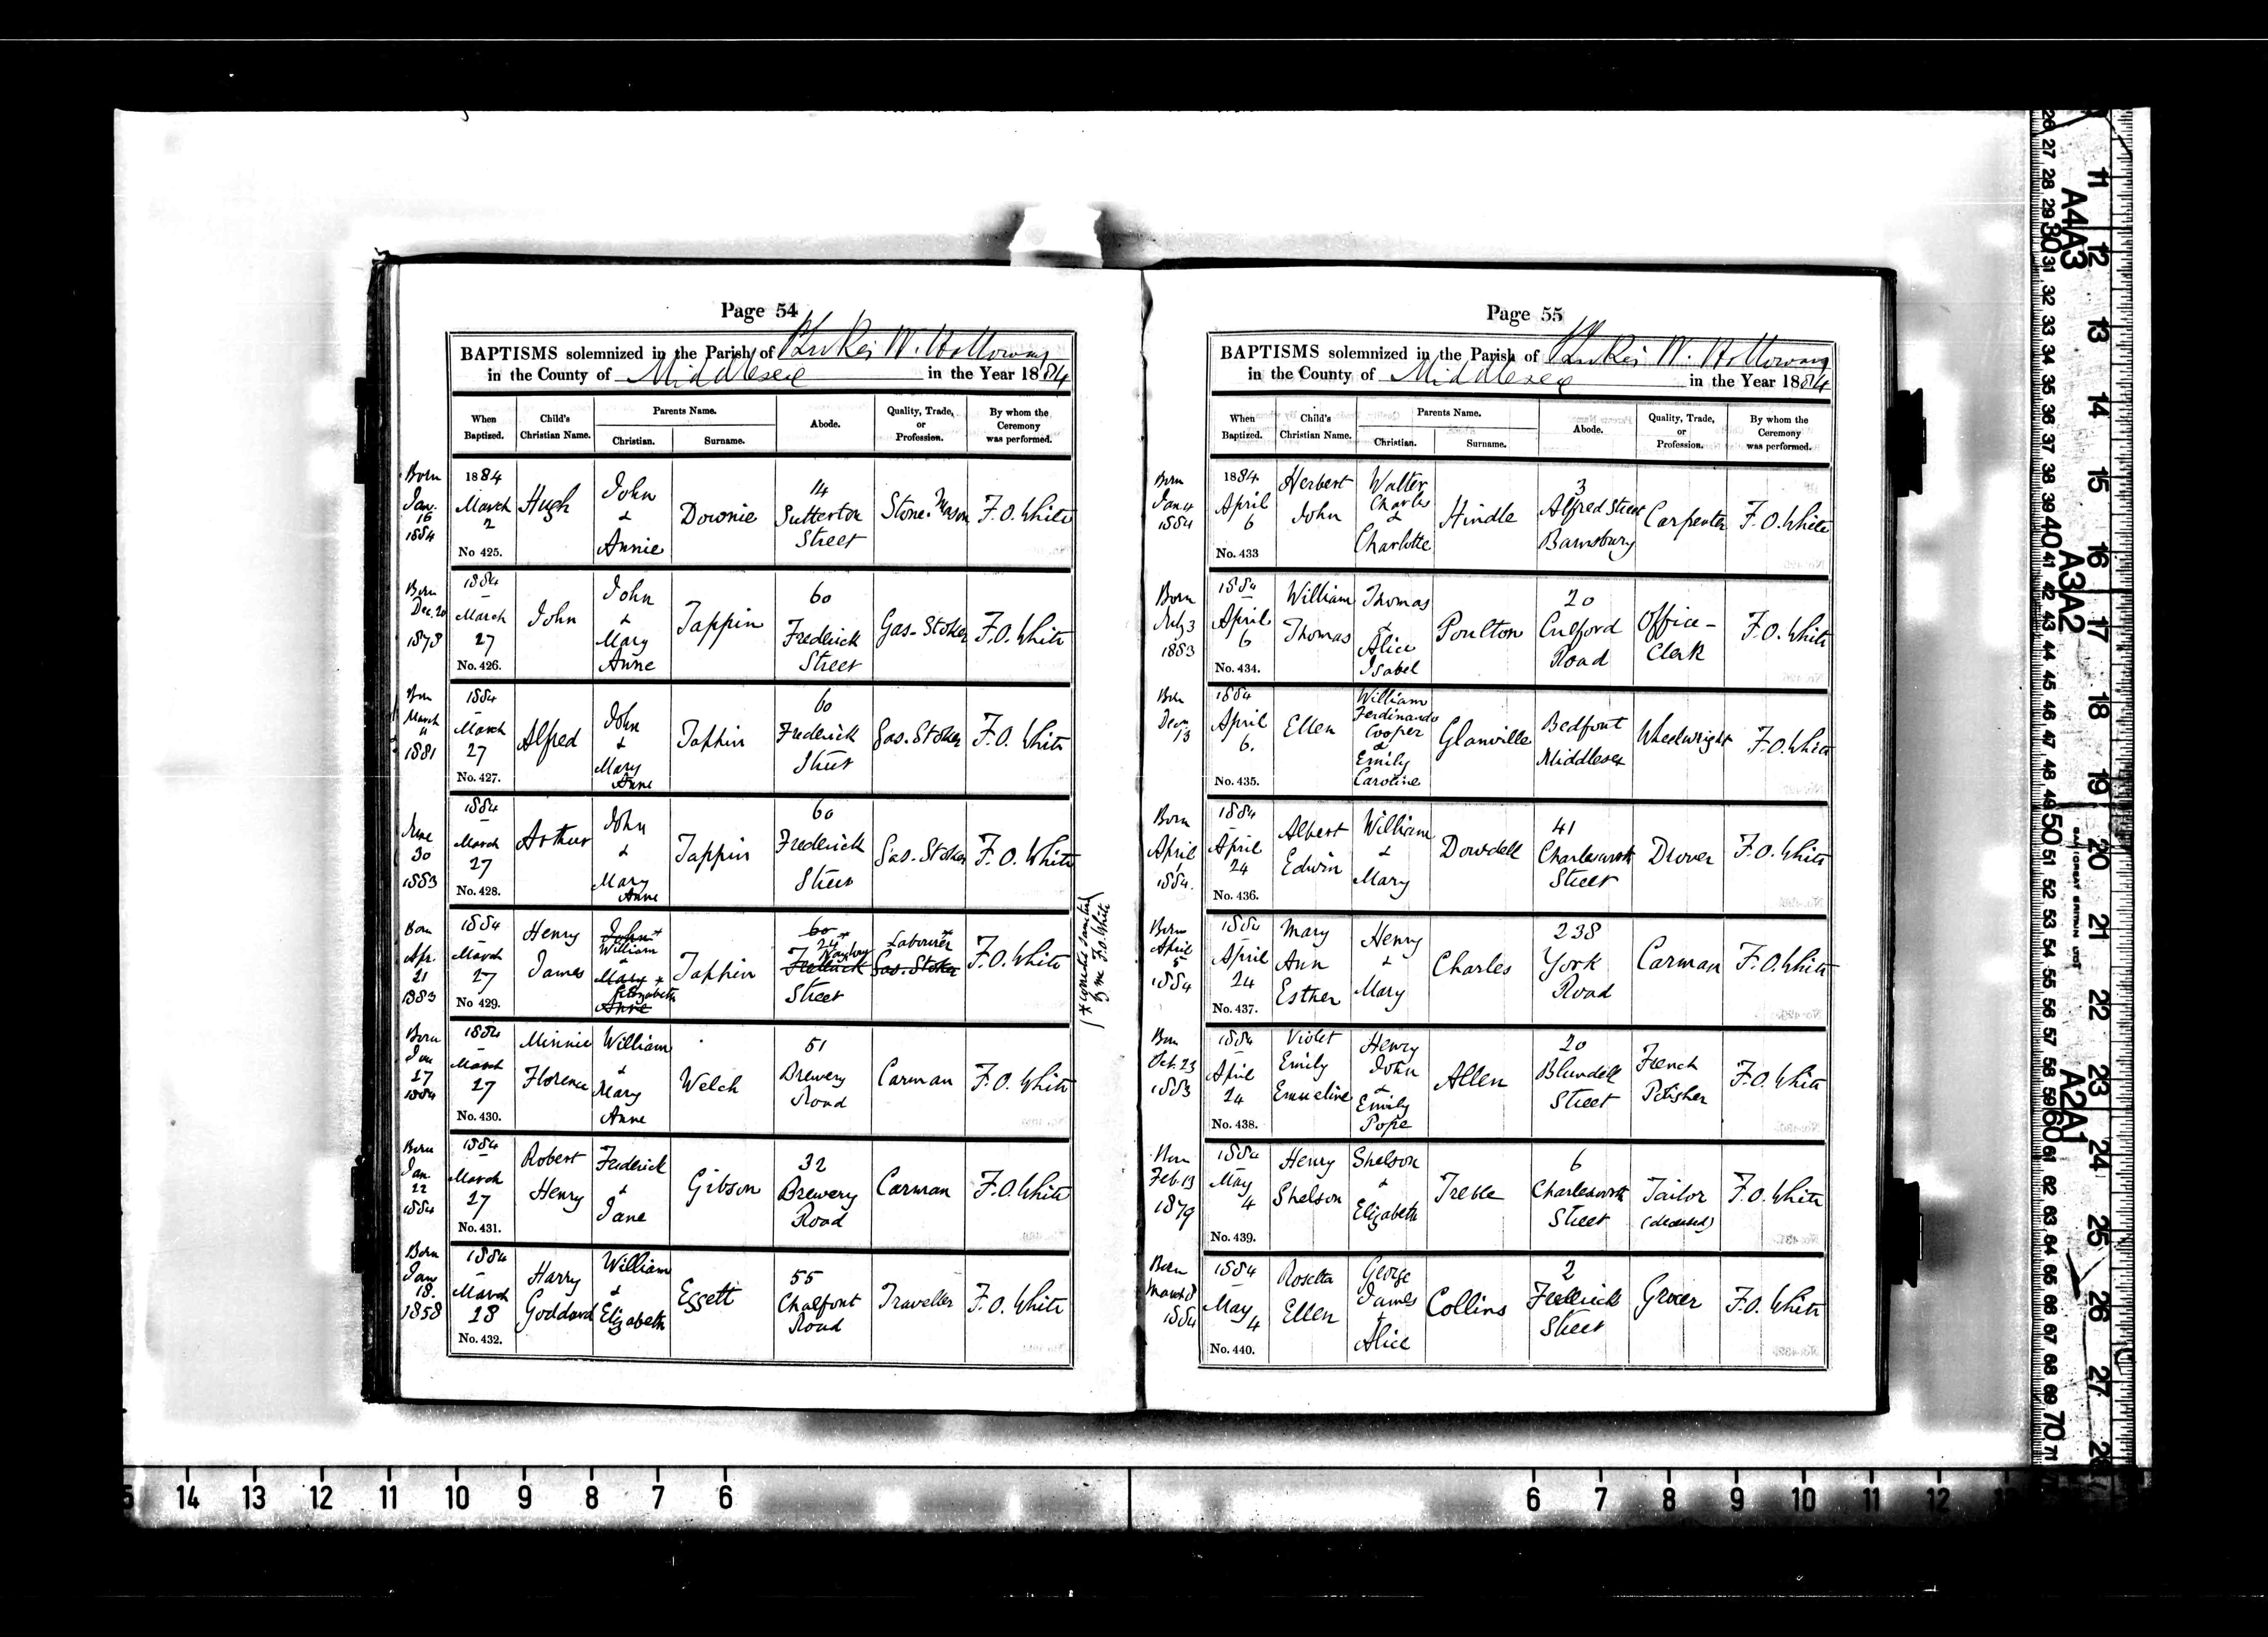 Page 54
BAPTISMS solemnized in the Parish of St Lukes W. Holloway
in the County of Middlesex in the Year 1884
When Baptized. Child's Christian Name. Parents Name. Christian. Surname. Abode. Quality, Trade, or Profession. By whom the Ceremony was performed.
Born Jan. 16 1884 1884 March 2 No 425. Hugh John & Annie Downie 14 Sutterton Street Stone-Mason F.O. White
Born Dec. 20 1878 1884 March 27 No. 426. John John & Mary Anne Tappin 60 Frederick Street Gas-Stoker F.O. White
Born March 11 1881 1884 March 27 No. 427. Alfred John & Mary Anne Tappin 60 Frederick Street Gas-Stoker F.O. White
June 30 1883 1884 March 27 No. 428. Arthur John & Mary Anne Tappin 60 Frederick Street Gas-Stoker F.O. White
Born Apr. 21 1883 1884 March 27 No 429. Henry James John* William & Mary * Elizabeth Anne Tappin 60 24* Frederick Street Labourer* Gas-Stoker F.O. White
by me F.O. White
Born Jan 27 1884 1884 March 27 No. 430. Minnie Florence William & Mary Anne Welch 51 Brewery Road Carman F.O. White
Born Jan 22 1884 1884 March 27 No. 431. Robert Henry Frederick & Jane Gibson 32 Brewery Road Carman F.O. White
Born Jan 18. 1858 1884 March 28 No. 432. Harry Goddard William & Elizabeth Eggett 55 Chalfont Road Traveller F.O. White
Page 55
BAPTISMS solemnized in the Parish of St Lukes W. Holloway
in the County of Middlesex in the Year 1884
When Baptized. Child's Christian Name. Parents Name. Christian. Surname. Abode. Quality, Trade, or Profession. By whom the Ceremony was performed.
Born Jan 4 1884 1884 April 6 No. 433 Herbert John Walter Charles & Charlotte Hindle 3 Alfred Street Barnsbury Carpenter F.O. White
Born July 3 1883 1884 April 6 No. 434. William Thomas Thomas & Alice Isabel Poulton 20 Culford Road Office-Clerk F.O. White
Born Decr 13 1884 April 6. No. 435. Ellen William Ferdinando Cooper & Emily Caroline Glanville Bedfont Middlesex Wheelwright F.O. White
Born April 1 1884. 1884 April 24 No. 436. Albert Edwin William & Mary Dowdell 41 Charlesworth Street Drover F.O. White
Born April 5 1884 1884 April 24 No. 437. Mary Ann Esther Henry & Mary Charles 238 York Road Carman F.O. White
Born Oct. 23 1883 1884 April 24 No. 438. Violet Emily Emmeline Henry John & Emily Pope Allen 20 Blundell Street French Polisher F.O. White
Born Feb. 13 1879 1884 May 4 No. 439. Henry Shelson Shelson & Elizabeth Treble 6 Charlesworth Street Tailor (deceased) F.O. White
Born March 8 1884 1884 May 4 No. 440. Rosetta Ellen George James & Alice Collins 2 Frederick Street Grocer F.O. White